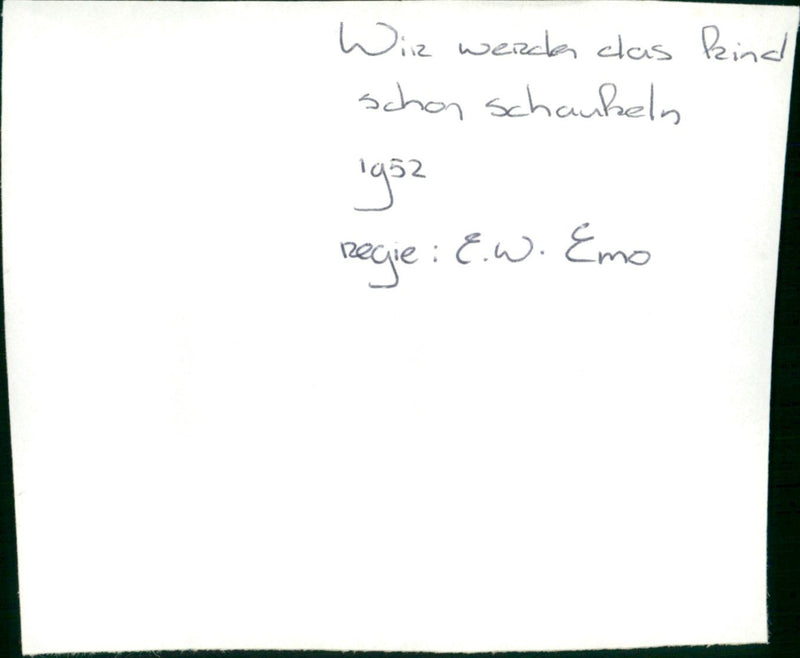 Wir werden das Kind
schon schaukeln
1952
regie: E.W. Emo